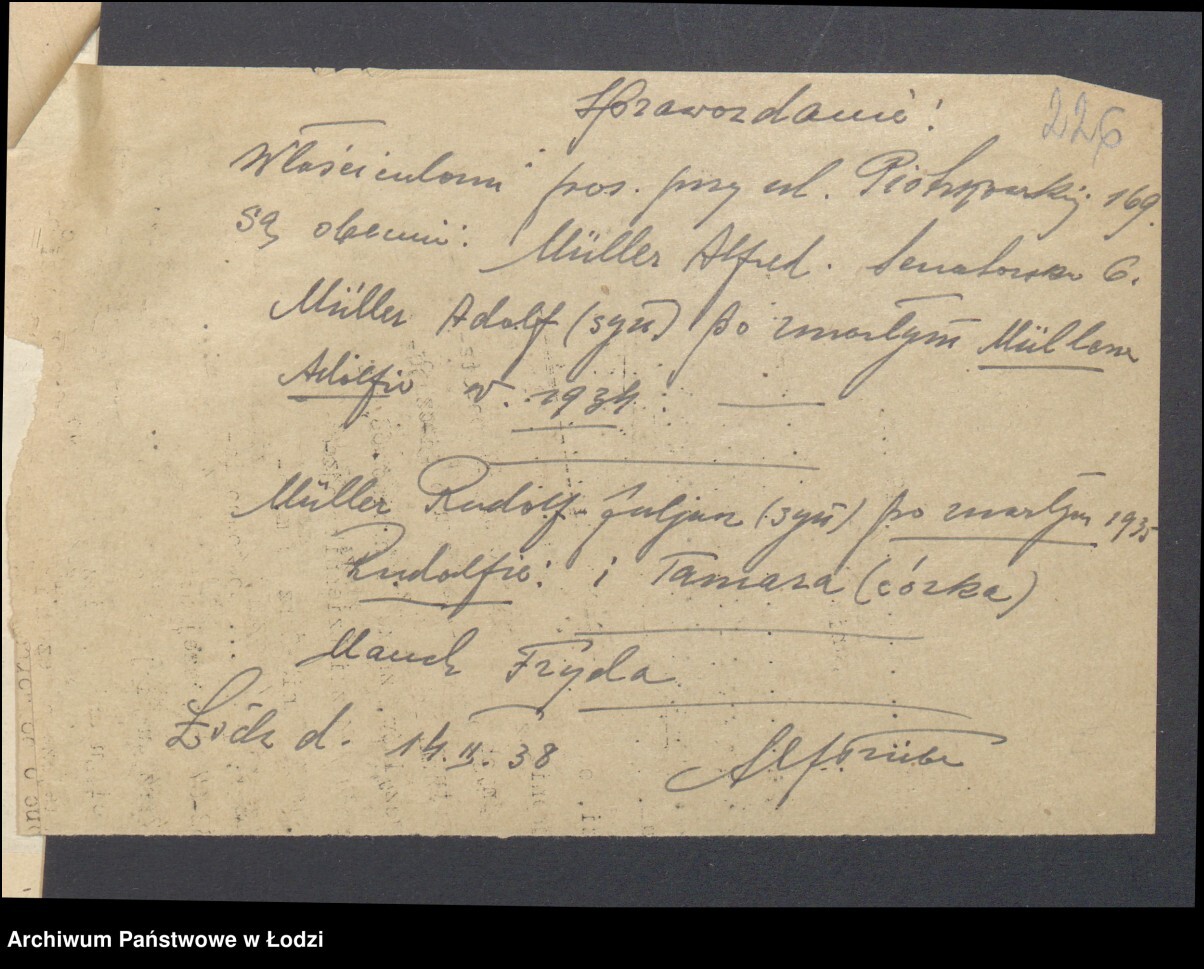 Sprawozdanie!
226
Właścicielami pos. przy ul. Piotrkowskiej 169.
są obecnie: Müller Alfred. Senatorska 6.
Müller Adolf (syn) po zmarłym Müllerze
Adolfie w. 1934:
Müller Rudolf Juljan (syn) po zmarłym 1935
Rudolfie: i Tamara (córka)
Mauch Fryda
Łódź d. 14.II.38
Archiwum Państwowe w Łodzi